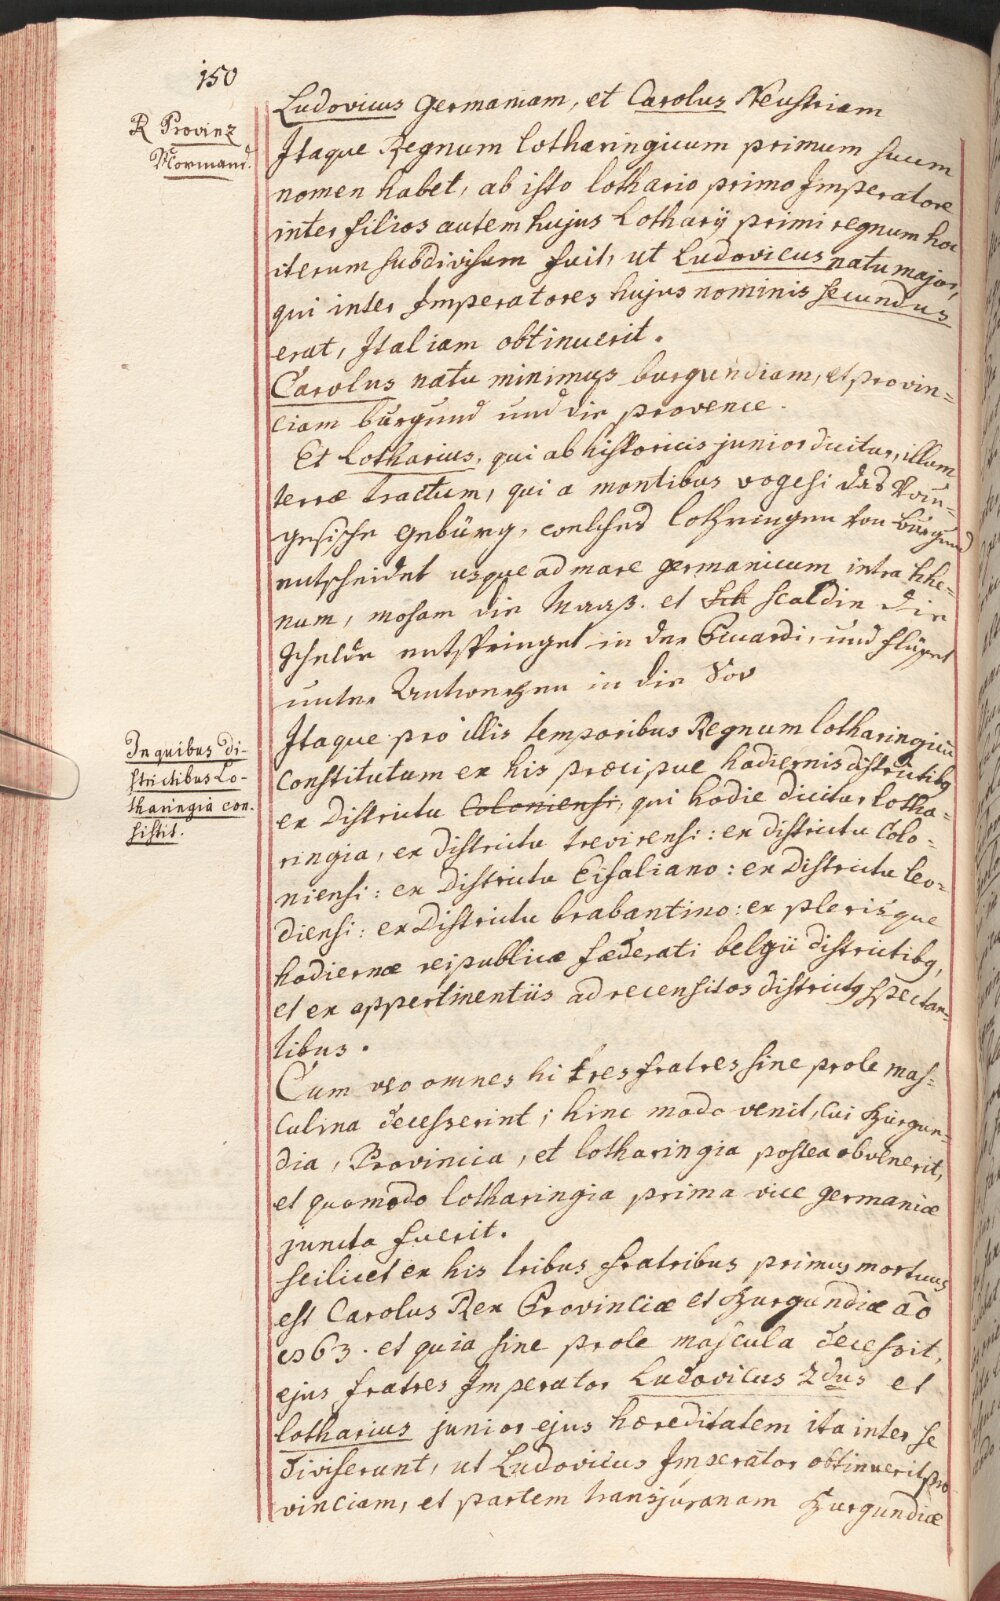 150
R Provinz
Normand.
Ludovicus Germaniam, et Carolus Neustriam
Itaque Regnum Lotharingicum primum suum
nomen habet, ab isto lothario primo Imperatore
inter filios autem hujus Lotharij primi regnum hoc
iterum subdivisum fuit, ut Ludovicus natu major,
qui inter Imperatores hujus nominis secundus
erat, Italiam obtinuerit.
Carolus natu minimus burgundiam, et provin=
ciam burgund und die provence.
Et Lotharius, qui ab historicis junior dicitur, illum
terræ tractum, qui a montibus vogesi das
gesische Gebürg, welches lothringen von burgund
entscheidet usque ad mare germanicum intra Rhe=
num, mosam die Maaß. et Sch scaldin die
Schelde entspringet in der Picardi, und flüßet
unter Antwerpen in die
In quibus di-
strictibus Lo-
tharingia con-
sistit.
Itaque pro illis temporibus Regnum lotharingicū
constitutum ex his præcipue hodiernis districtibq
ex Districtu Coloniensi, qui hodie dicitur lotha=
ringia, ex districtu trevirensi: ex districtu Colo=
niensi: ex Districtu Eifaliano: ex Districtu leo=
diensi: ex Districtu brabantino: ex plerisque
hodiernæ reipublicæ fæderati belgii districtibq,
et ex appertinentiis ad recensitos districtq spectan=
tibus.
Cum vero omnes hi tres fratres sine prole mas=
culina decesserint; hinc modo venit, cui Burgun=
dia, Provincia, et lotharingia postea obvenerit,
et quomodo lotharingia prima vice germaniæ
juncta fuerit.
scilicet ex his tribus fratribus primus mortuus
est Carolus Rex Provinciæ et Burgundiæ ao
863. et quia sine prole mascula decessit,
ejus fratres Imperator Ludovicus 2dus et
lotharius junior ejus hæreditatem ita inter se
diviserunt, ut Ludovicus Imperator obtinuerit pro
vinciam, et partem transjuranam Burgundiæ